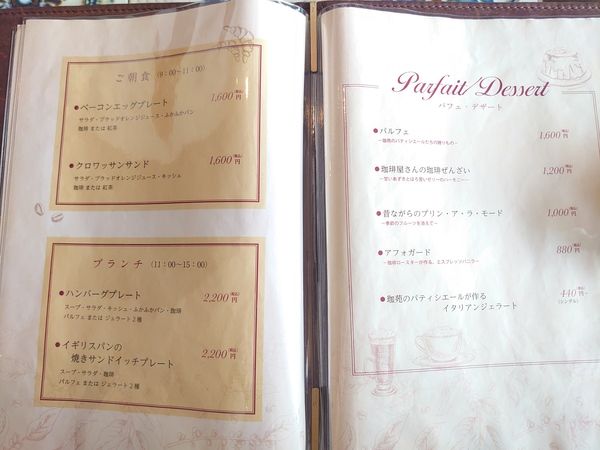 ご朝食 (9:00～11:00)
●ベーコンエッグプレート 1,600円(税込)
サラダ・ブラッドオレンジジュース・ふかふかパン
珈琲 または 紅茶
●クロワッサンサンド 1,600円(税込)
サラダ・ブラッドオレンジジュース・キッシュ
珈琲 または 紅茶
ブランチ (11:00～15:00)
●ハンバーグプレート 2,200円(税込)
スープ・サラダ・キッシュ・ふかふかパン・珈琲
パルフェ または ジェラート2種
●イギリスパンの
焼きサンドイッチプレート 2,200円(税込)
スープ・サラダ・珈琲
パルフェ または ジェラート2種
Parfait/Dessert
パフェ・デザート
●パルフェ 1,600円(税込)
～珈苑のパティシエールたちの贈りもの～
●珈琲屋さんの珈琲ぜんざい 1,200円(税込)
～甘いあずきとほろ苦いゼリーのハーモニー～
●昔ながらのプリン・ア・ラ・モード 1,000円(税込)
～季節のフルーツを添えて～
●アフォガード 880円(税込)
～珈琲ロースターが作る、エスプレッソバニラ～
●珈苑のパティシエールが作る 440円～(税込)
イタリアンジェラート (シングル)